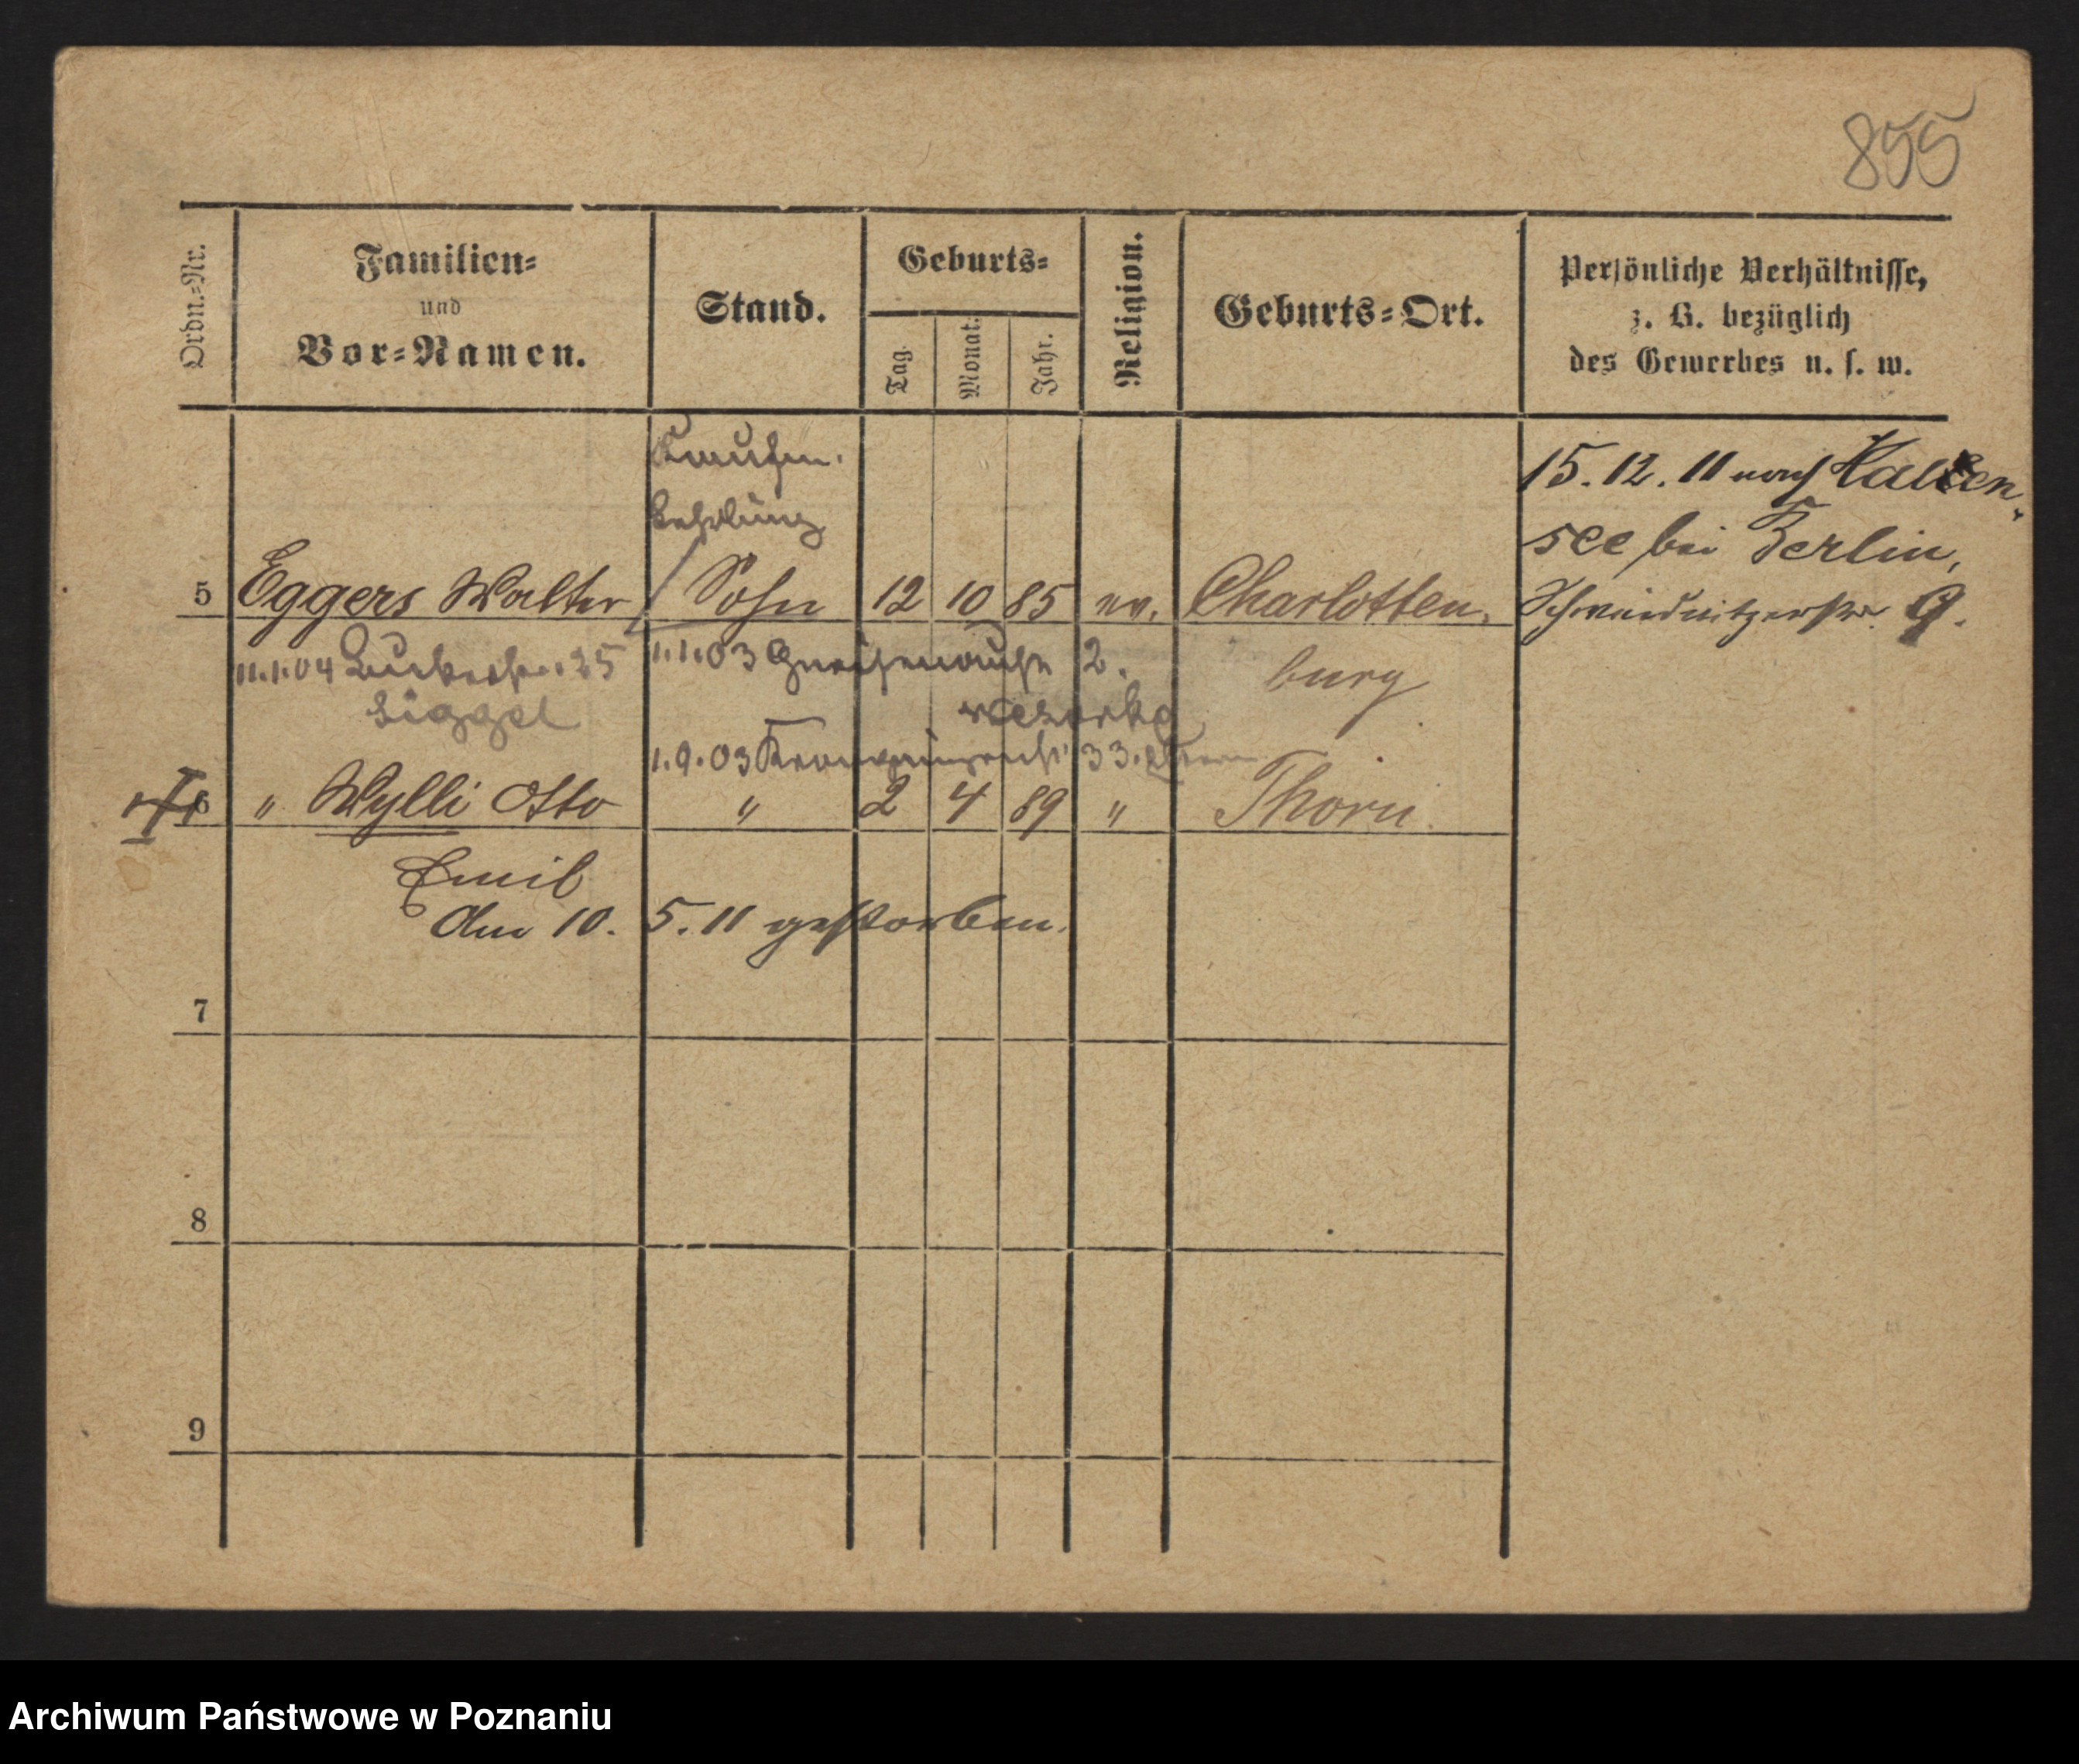 855
Ordn.-Nr.
Familien-
und
Vor-Namen.
Stand.
Geburts-
Tag.
Monat.
Jahr.
Religion.
Geburts-Ort.
Persönliche Verhältnisse,
z. B. bezüglich
des Gewerbes u. s. w.
Kaufm.
Lehrling
5 Eggers Walter Sohn 12 10 85 ev. Charlotten
burg
15.12.11 nach Halen
see bei Berlin,
Schweidnitzerstr. 9.
11.1.04 25
Siggel
1.1.03 Gneisenaustr 2.
1.9.03 Kronprinzenstr 33.
6 " Wylli Otto " 2 4 89 " Thorn
Emil
Am 10. 5. 11 gestorben.
7
8
9
Archiwum Państwowe w Poznaniu